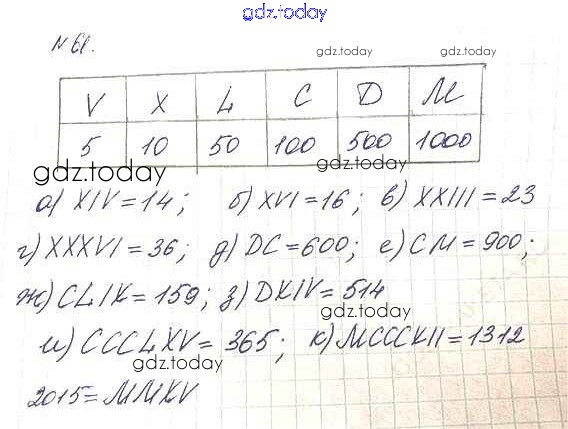 gdz.today
№ 61.
gdz.today
gdz.today
V X L C D M
5 10 50 100 500 1000
gdz.today
gdz.today
а) XIV = 14; б) XVI = 16; в) XXIII = 23
г) XXXVI = 36; д) DC = 600; е) CM = 900;
ж) CLIX = 159; з) DXIV = 514
gdz.today
и) CCCLXV = 365; к) MCCCXII = 1312
gdz.today
2015 = MMXV